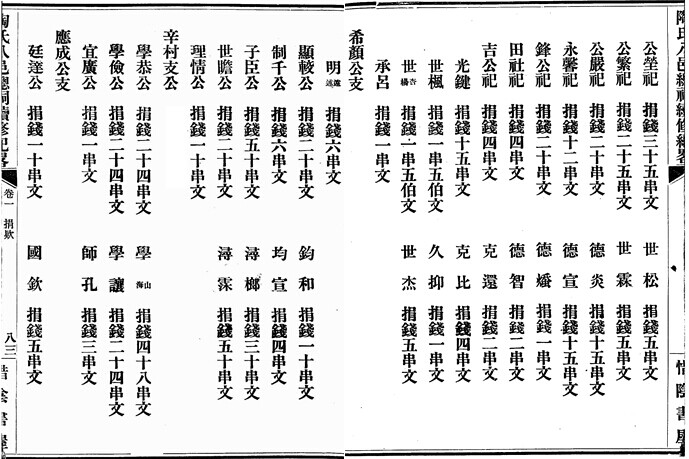 公塋祀　捐錢三十五串文　世松　捐錢五串文
公繁祀　捐錢二十五串文　世霖　捐錢五串文
公嚴祀　捐錢二十串文　德炎　捐錢十五串文
永馨祀　捐錢十二串文　德宣　捐錢十五串文
鋒公祀　捐錢二十串文　德嬏　捐錢一串文
田社祀　捐錢四串文　德智　捐錢二串文
吉公祀　捐錢四串文　克還　捐錢二串文
光鍵　捐錢十五串文　克比　捐錢四串文
世楓　捐錢一串五伯文　久抑　捐錢一串文
世杏橋　捐錢一串五伯文　世杰　捐錢五串文
承呂　捐錢一串文
希顏公支
明　捐錢六串文
顯較公　捐錢二十串文　鈞和　捐錢一十串文
制千公　捐錢六串文　均宣　捐錢四串文
子臣公　捐錢五十串文　潯鄉　捐錢三十串文
世瞻公　捐錢二十串文　潯霂　捐錢五十串文
理情公　捐錢一十串文
辛村支公
學恭公　捐錢二十四串文　學山海　捐錢四十八串文
學儉公　捐錢二十四串文　學讓　捐錢二十四串文
宜廣公　捐錢一串文　師孔　捐錢三串文
應成公支
廷達公　捐錢一十串文　國欽　捐錢五串文
卷一　捐欵
八三
惜陰書屋